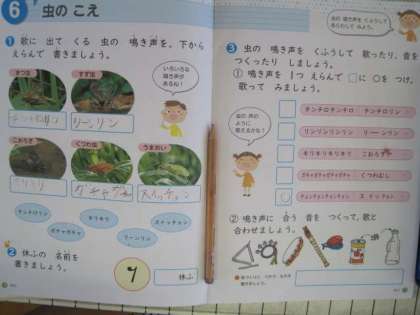 6 虫の こえ
1 歌に 出て くる 虫の 鳴き声を、下から
えらんで 書きましょう。
まつ虫
すず虫
いろいろな
鳴き声が
あるね！
チンチロリン
リーンリン
こおろぎ
くつわ虫
うまおい
キリキリ
ガチャガチャ
スイッチョン
チンチロリン
キリキリ
スイッチョン
ガチャガチャ
リーンリン
2 休ふの 名前を
書きましょう。
休ふ
虫の 鳴き声を くふうして
あらわして みよう。
3 虫の 鳴き声を くふうして 歌ったり、音を
つくったり しましょう。
① 鳴き声を 1つ えらんで □に ○を つけ、
歌って みましょう。
虫の 声の
ように
歌えるかな？
チンチロチンチロ チンチロリン
リンリンリンリン リーンリン
キリキリキリキリ こおろぎ
ガチャガチャガチャガチャ くつわむし
チョンチョンチョンチョン スイッチョン
② 鳴き声に 合う 音を つくって、歌と
合わせましょう。